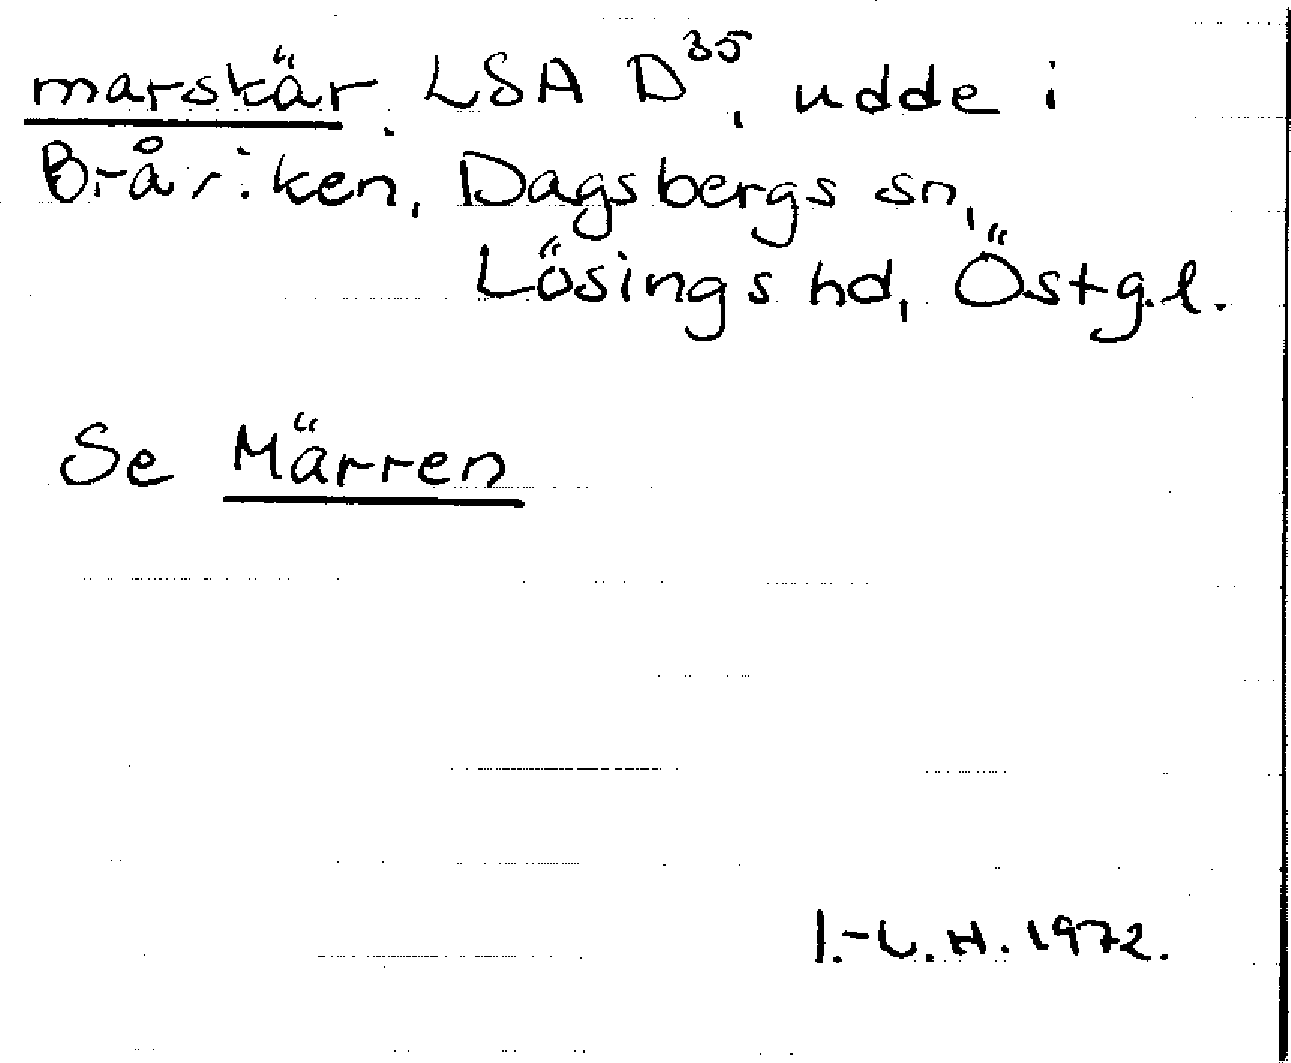 marskär. LSA D³⁵, udde i
Bråriken, Dagsbergs sn,
Lösings hd, Östg.l.
Se Märren
I.-L.H. 1972.